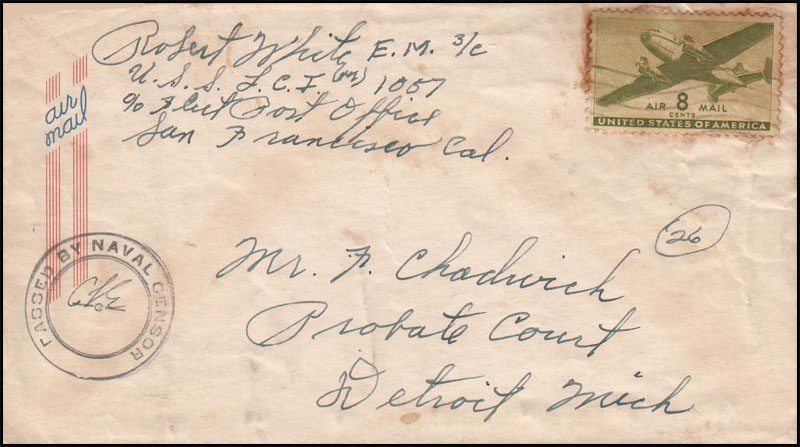 Robert White E.M. 3/c
U.S.S. L.C.I. (M) 1057
c/o Fleet Post Office
San Francisco Cal.
air
mail
AIR 8 MAIL
CENTS
UNITED STATES OF AMERICA
PASSED BY NAVAL CENSOR
26
Mr. F. Chadwick
Probate Court
Detroit Mich